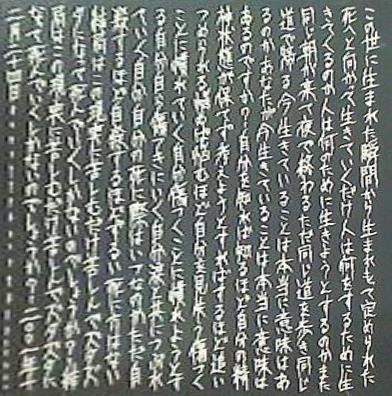 この世に生まれた瞬間から生まれもて定められた
死へと向かって生きていくだけ人は何をするために生
きてくるのか人は何のために生きようとするのかまた
同じ朝が来て夜で終わるただ同じ道を歩き同じ
道で帰る今生きていることは本当に意味はあ
るのかあなたが今生きていることは本当に意味は
あるのですか?自分を知れば知るほど自分の精
神状態が保てず考えようとすればするほど追い
つめられる悩めば悩むほど自分を見失う傷つく
ことに慣れていく自分傷つくことに慣れようとす
る自分自ら傷つきにいく自分涙と共につぶれ
ていく自分自分の死に際はいつなのかただ自
殺するほど自殺するほどずるい死に方はない
結局はこの現実に苦しむだけ苦しんでズタズ
タになって死んでいくしかないのでしょうか?結
局はこの現実に苦しむだけ苦しんでズタズタに
なって死んでいくしかないのでしょうか?二〇〇一年十
一月二十四日